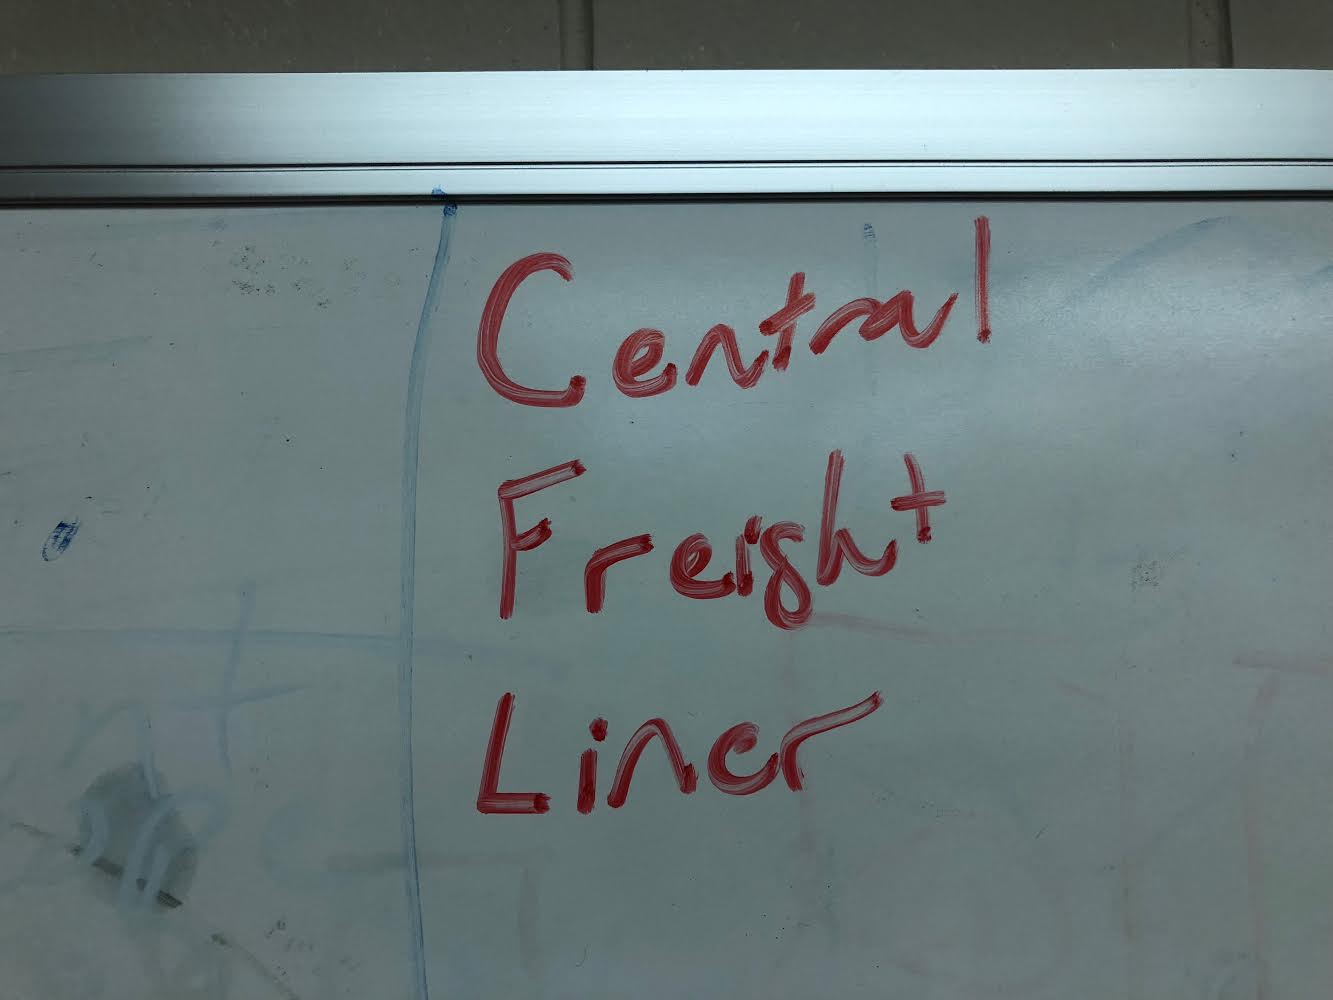 Central
Freight
Liner